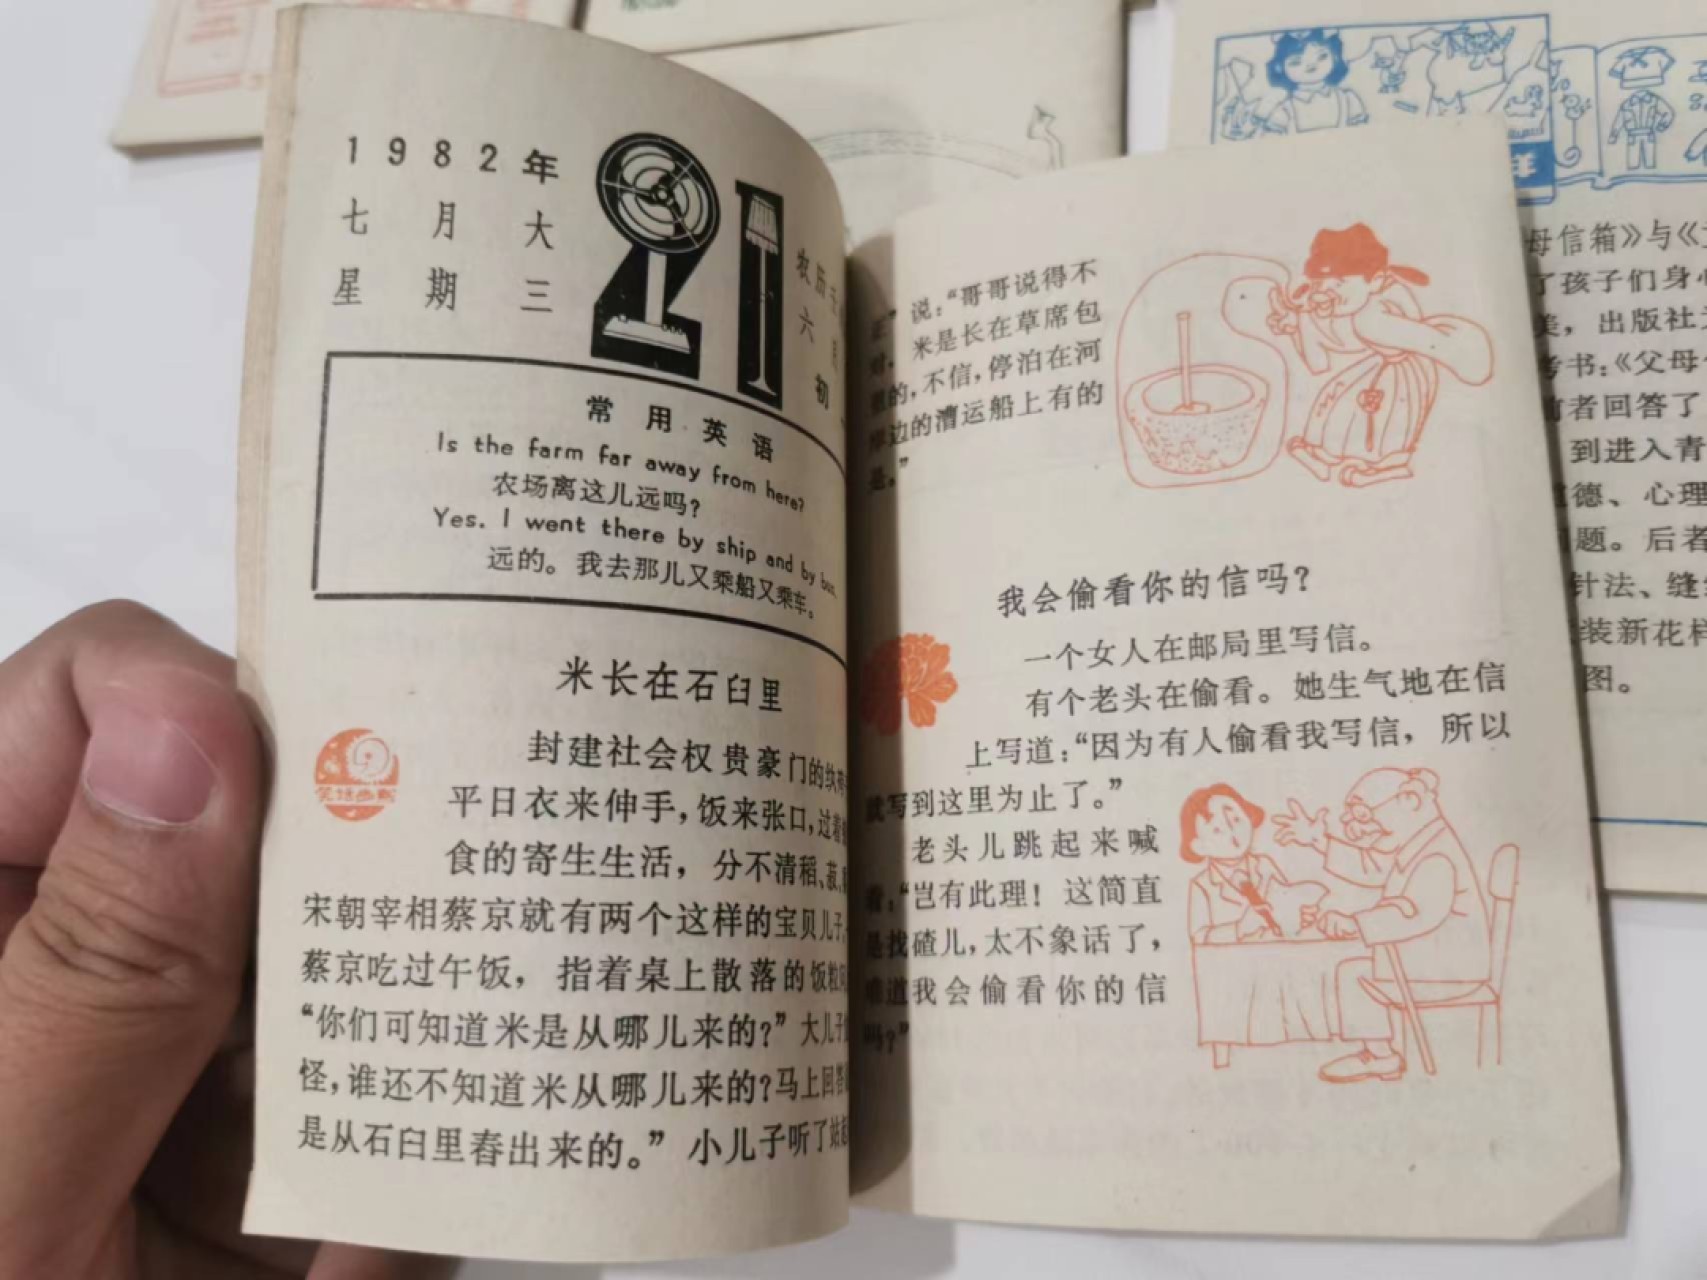 1982年
七月大
星期三
21
农历壬
六月
初
常用英语
Is the farm far away from here?
农场离这儿远吗?
Yes. I went there by ship and by bus.
远的。我去那儿又乘船又乘车。
米长在石臼里
封建社会权贵豪门的纨
平日衣来伸手,饭来张口,过着
食的寄生生活,分不清稻、菽、
宋朝宰相蔡京就有两个这样的宝贝儿子,
蔡京吃过午饭,指着桌上散落的饭粒问
“你们可知道米是从哪儿来的?”大儿子
怪,谁还不知道米从哪儿来的?马上回答
是从石臼里舂出来的。”小儿子听了
说:“哥哥说得不
对,米是长在草席包
的,不信,停泊在河
岸边的漕运船上有的
是。”
我会偷看你的信吗?
一个女人在邮局里写信。
有个老头在偷看。她生气地在信
上写道:“因为有人偷看我写信,所以
就写到这里为止了。”
老头儿跳起来喊
着:“岂有此理!这简直
是找碴儿,太不象话了,
难道我会偷看你的信
吗?”
母信箱》与《
了孩子们身心
美,出版社
考书:《父母
前者回答了
到进入青
道德、心理
问题。后者
针法、缝
装新花样
图。